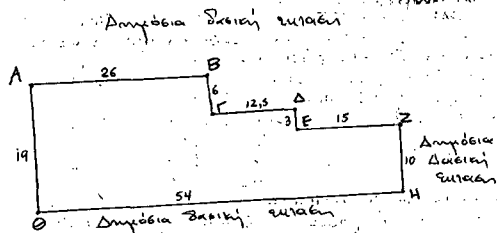 Δημόσια δασική έκταση
A 26 B
6
Γ 12,5 Δ
3 E 15 Z
19
10
Δημόσια
Δασική
έκταση
54
Θ Δημόσια δασική έκταση H